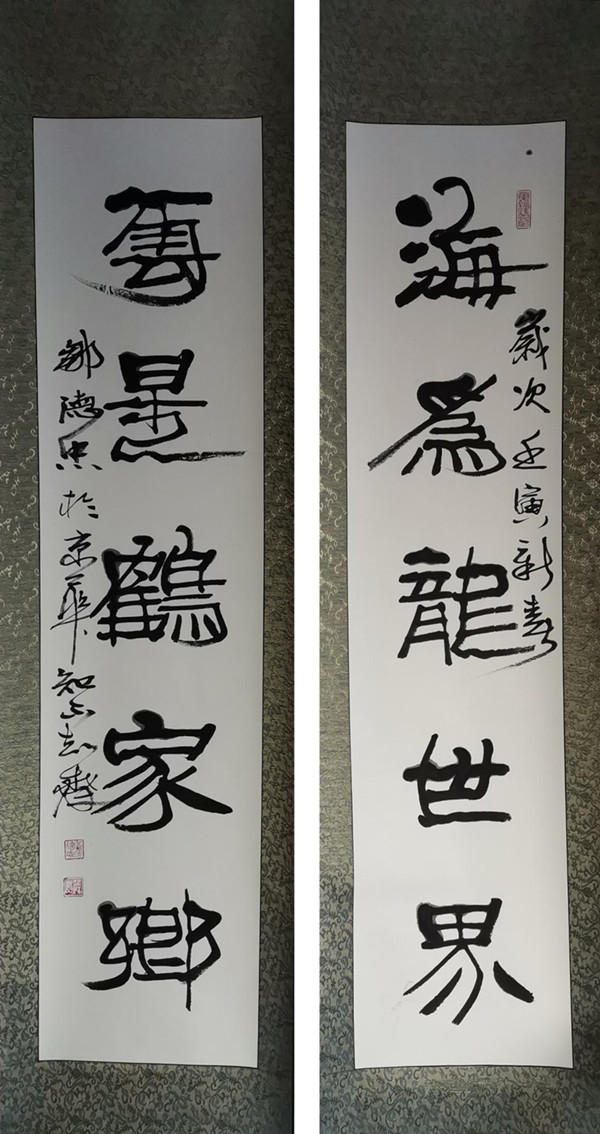 海為龍世界
歲次壬寅新春
雲是鶴家鄉
鄒德忠於京華知不知齋